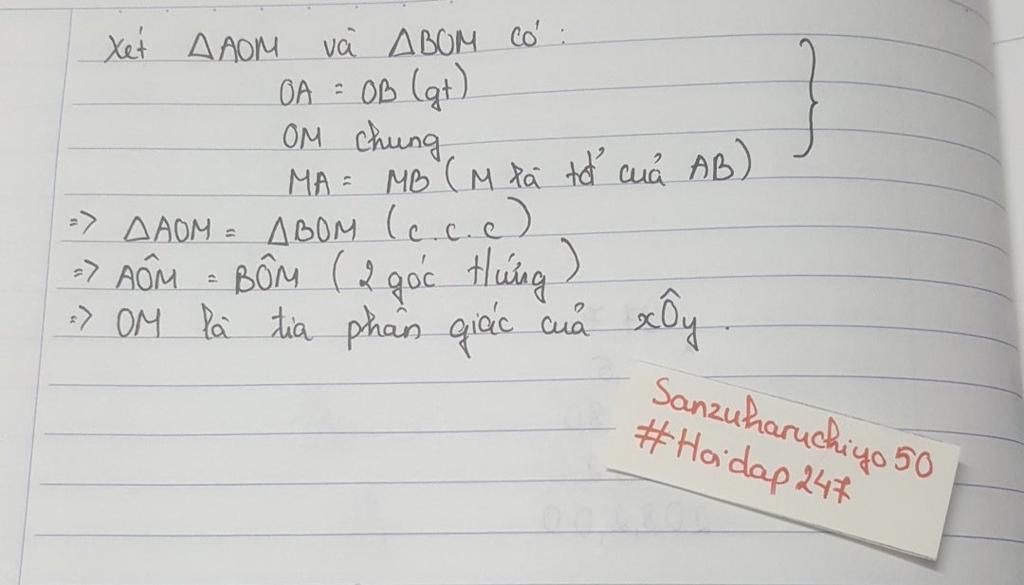 Xét ΔAOM và ΔBOM có :
OA = OB (gt)
OM chung
MA = MB (M là tđ của AB)
=> ΔAOM = ΔBOM (c.c.c)
=> AÔM = BÔM (2 góc tứng)
=> OM là tia phân giác của xÔy .
Sanzuharuchiyo50
#Hoidap247